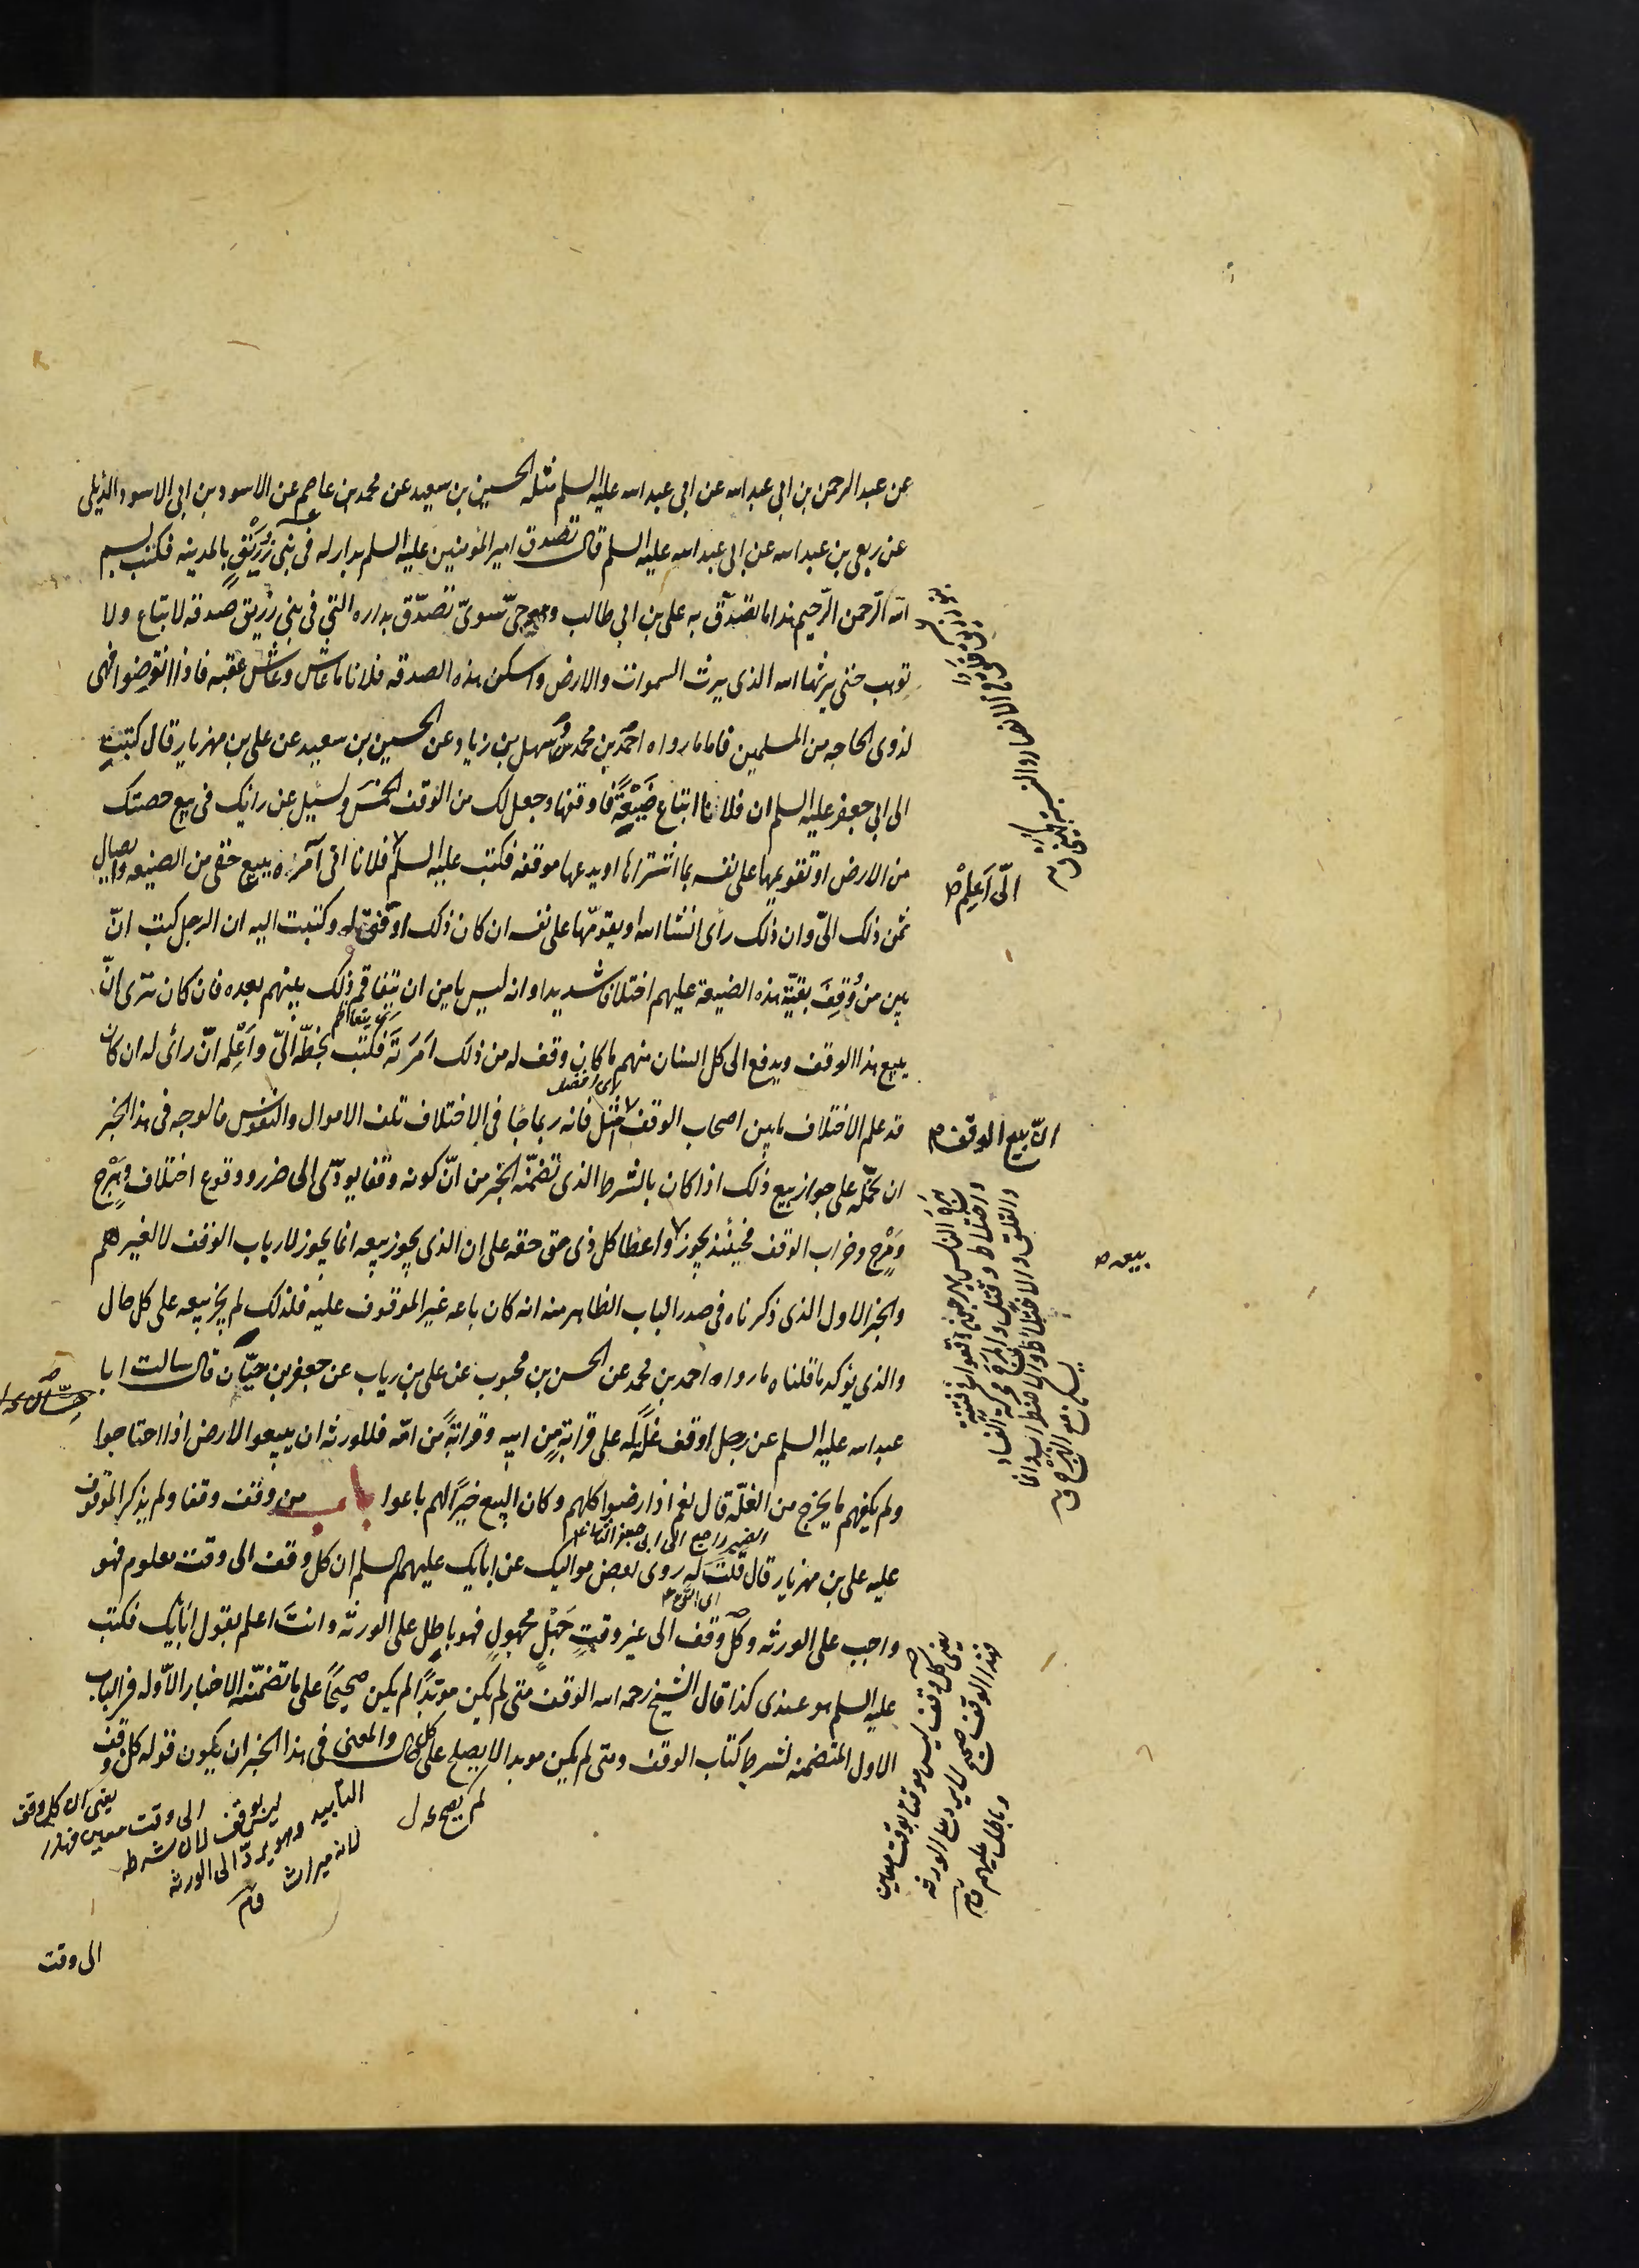 عن عبد الرحمن بن ابى عبد الله عن ابى عبد الله عليه السلم مثله الحسين بن سعيد عن محمد بن عاصم عن الاسود بن ابى الاسود الدئلى
عن ربعى بن عبد الله عن ابى عبد الله عليه السلم قال تصدق امير المؤمنين عليه السلم بدار له فى بنى زُرَيْقٍ بالمدينه فكتب بسم
الله الرّحمن الرّحيم هذا ما تصدّق به على بن ابى طالب وهو حىّ سوىّ تصدّق بداره التى فى بنى زريق صدقه لا تباع ولا
توهب حتى يرثها الله الذى يرث السموات والارض واسكن هذه الصدقه فلانا ما عاش وعاش عقبه فاذا انقرضوا فهى
لذوى الحاجه من المسلمين فاما ما رواه احمد بن محمد وسهل بن زياد عن الحسين بن سعيد عن على بن مهزيار قال كتبت
الى ابى جعفر عليه السلم ان فلانا ابتاع ضَيْعَةً فاوقفها وجعل لك من الوقف الخمس ويسئل عن رايك فى بيع حصتك
من الارض او تقويمها على نفسه بما اشتراها او يدعها موقفه فكتب عليه السلم فلانا انى آمره ببيع حقى من الضيعه وايصال
الىّ اَعلِمْ
ثمن ذلك الىّ وان ذلك رأى انشا الله او يقوّمها على نفسه ان كان ذلك اوفق له وكتبت اليه ان الرجل كتب انّ
بين من وُقِفَ بقيّة هذه الضيعة عليهم اختلافا شديدا وانه ليس يامن ان يتفاقم ذلك بينهم بعده فان كان ترى انّ
يتعاظم
يبيع هذا الوقف ويدفع الى كل انسان منهم ما كان وقف له من ذلك اَمَرتَه فكتب بخطّه الىّ واَعْلِمه انّ رأى له ان كان
انّ بيع الوقف
قد علم الاختلاف ما بين اصحاب الوقف امثل فانه ربما جا فى الاختلاف تلف الاموال والنفوس فالوجه فى هذا الخبر
ان نحمله على جواز بيع ذلك اذا كان بالشرط الذى تضمّنه الخبر من انّ كونه وقفا يودّى الى ضرر ووقوع اختلاف وهَرْج
ومَرْج وخراب الوقف فحينئذ يجوز واعطا كل ذى حق حقه على ان الذى يجوز بيعه انما يجوز لارباب الوقف لا لغيرهم
بيعه
والخبر الاول الذى ذكرناه فى صدر الباب الظاهر منه انه كان باعه غير الموقوف عليه فلذلك لم يجز بيعه على كل حال
والذى يؤكد ما قلناه ما رواه احمد بن محمد عن الحسن بن محبوب عن على بن رياب عن جعفر بن حيّان قال سالت ابا
عبد الله عليه السلم عن رجل اوقف غلّة له على قرابةٍ من ابيه وقرابةٍ من امّه فللورثه ان يبيعوا الارض اذا احتاجوا
ولم يكفهم ما يخرج من الغلّه قال نعم اذا رضوا كلهم وكان البيع خيرًا لهم باعوا باب من وقف وقفا ولم يذكر الموقوف
الضمير راجع الى ابى جعفر الثانى
عليه على بن مهزيار قال قلت له روى بعض مواليك عن ابايك عليهم السلم ان كل وقف الى وقت معلوم فهو
واجب على الورثه وكل وقف الى غير وقتٍ جَهْلٍ مجهولٍ فهو باطل على الورثه وانتَ اعلم بقول ابايك فكتب
عليه السلم هو عندى كذا قال الشيخ رحمه الله الوقف متى لم يكن موبّدًا لم يكن صحيحًا على ما تضمّنه الاخبار الاوّله فى الباب
الاول المتضمنه لشرط كتاب الوقف ومتى لم يكن موبدا لا يصلح على كل حال والمعنى فى هذا الخبر ان يكون قوله كل وقف
يعنى ان كل وقف
الى وقت معين فهذا
ليس بوقف لان شرطه
التابيد وهو يردّ الى الورثه
لانه ميراث
يعنى كل وقف ليس موقتا بوقت معين
فهذا الوقف صحيح
وباطل عليهم
الى وقت